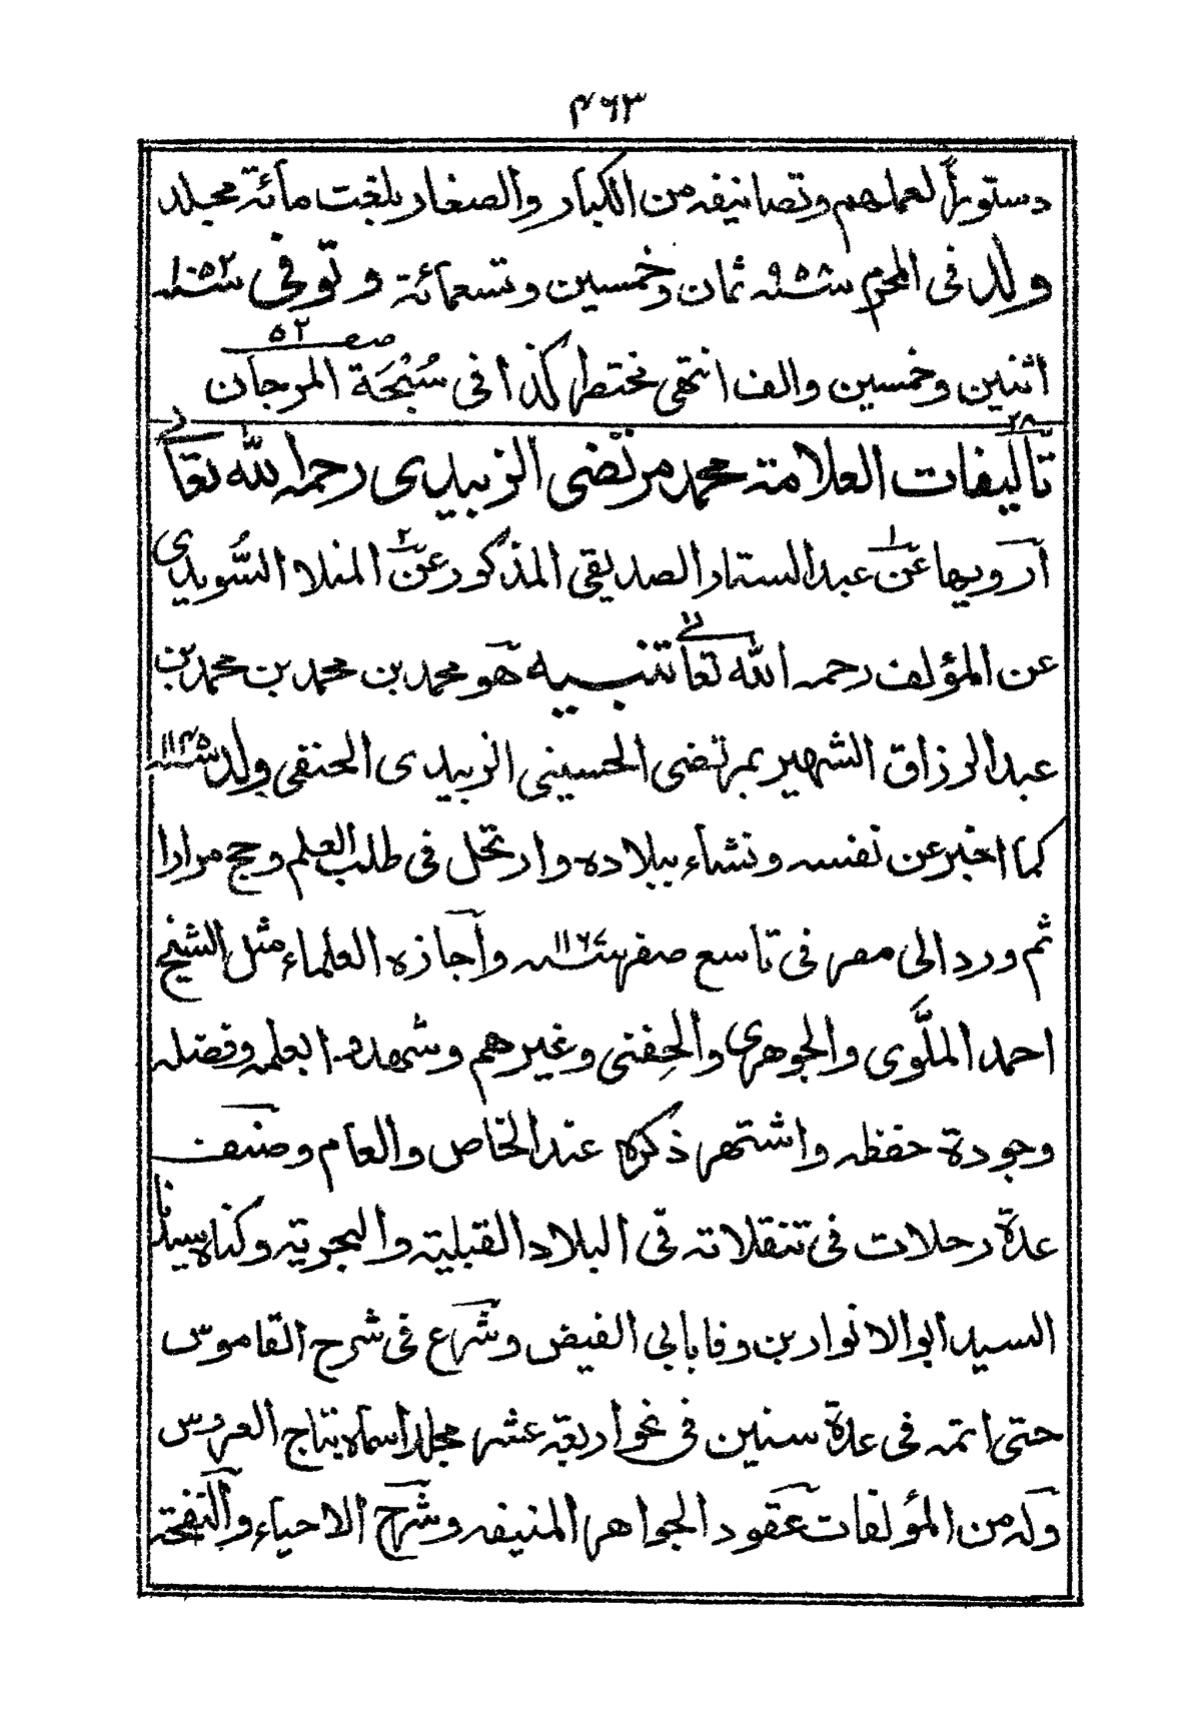 ٤٦٣
دستوراً لعملهم وتصانيفه من الكبار والصغار بلغت مائة مجلد
ولد فى المحرم سنة ٩٥٨ ثمان وخمسين وتسعمائة وتوفى سنة ١٠٥٢
اثنين وخمسين والف انتهى مختصرا كذا فى سُبْحَة المرجان صـ ٥٢
٢٨ تآليفات العلامة محمد مرتضى الزبيدى رحمه الله تعالى
أرويها عن عبد الستار الصديقى المذكور عن المنلا السُّويدى
عن المؤلف رحمه الله تعالى تنبيه هو محمد بن محمد بن محمد بن
عبد الرزاق الشهير بمرتضى الحسينى الزبيدى الحنفى ولد سنة ١١٤٥
كما اخبر عن نفسه ونشاء ببلاده وارتحل فى طلب العلم وحج مرارا
ثم ورد الى مصر فى تاسع صفر سنة ١١٦٧ وأجازه العلماء مثل الشيخ
احمد الملَّوى والجوهرى والحِفنى وغيرهم وشهدوا بعلمه وفضله
وجودة حفظه واشتهر ذكره عند الخاص والعام وصنف
عدة رحلات فى تنقلاته فى البلاد القبلية والبحرية وكناه سيدنا
السيد ابو الانوار بن وفا بابى الفيض وشرع فى شرح القاموس
حتى اتمه فى عدة سنين فى نحو اربعة عشر مجلدا سماه بتاج العروس
وله من المؤلفات عقود الجواهر المنيفه وشرح الاحياء والنفحة